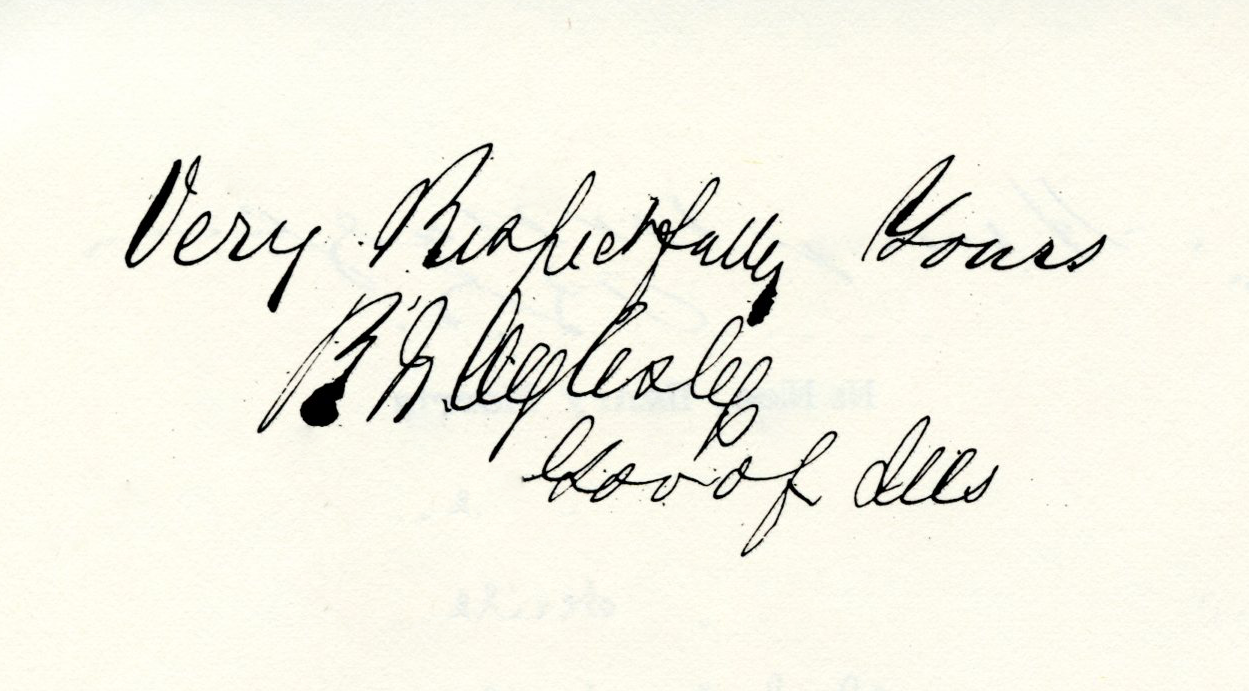 Very Respectfully Yours
R. J. Oglesby
Gov of Ills